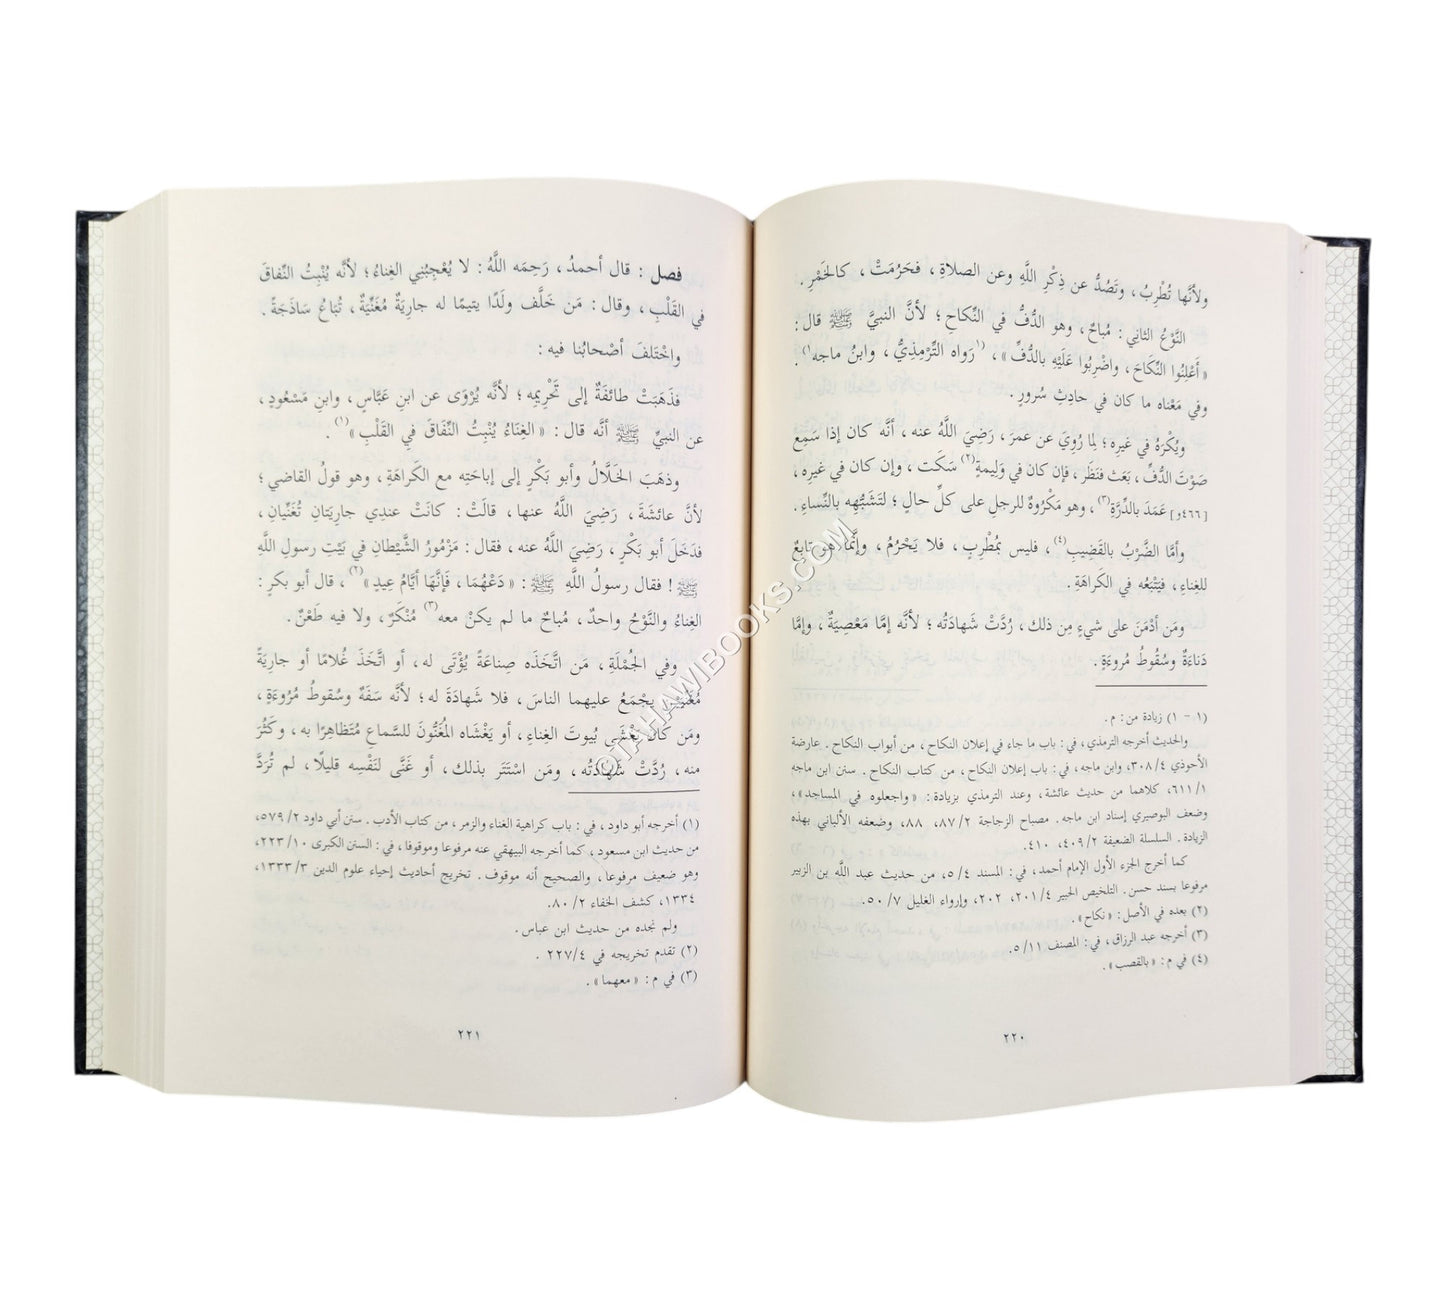 ولأنَّها تُطْرِبُ، وتَصُدُّ عن ذِكْرِ اللَّهِ وعن الصلاةِ، فحَرُمَتْ، كالخَمْرِ.
النَّوْعُ الثاني: مُباحٌ، وهو الدُّفُّ في النِّكاحِ؛ لأنَّ النبيَّ ﷺ قال:
«أَعْلِنُوا النِّكَاحَ، واضْرِبُوا عَلَيْهِ بالدُّفِّ»، (١رَواه التِّرْمِذِيُّ، وابنُ ماجه١).
وفي مَعْناه ما كان في حادِثِ سُرورٍ.
ويُكْرَهُ في غيرِه؛ لِما رُوِيَ عن عمرَ، رَضِيَ اللَّهُ عنه، أنَّه كان إذا سَمِع
صَوْتَ الدُّفِّ، بَعَث فنَظَر، فإن كان في وَلِيمةٍ(٢) سَكَت، وإن كان في غيرِه،
[٤٦٦و] عَمَدَ بالدِّرَّةِ(٣)، وهو مَكْرُوهٌ للرجلِ على كلِّ حالٍ؛ لتَشَبُّهِه بالنِّساءِ.
وأمَّا الضَّرْبُ بالقَضِيبِ(٤)، فليس بمُطْرِبٍ، فلا يَحْرُمُ، وإنَّما هو تابِعٌ
للغِناءِ، فيَتْبَعُه في الكَراهَةِ.
ومَن أدْمَنَ على شيءٍ مِن ذلك، رُدَّتْ شَهادَتُه؛ لأنَّه إمَّا مَعْصِيَةٌ، وإمَّا
دَناءَةٌ وسُقُوطُ مُروءَةٍ.
(١ - ١) زيادة من: م.
والحديث أخرجه الترمذي، في: باب ما جاء في إعلان النكاح، من أبواب النكاح. عارضة
الأحوذي ٤/ ٣٠٨، وابن ماجه، في: باب إعلان النكاح، من كتاب النكاح. سنن ابن ماجه
١/ ٦١١، كلاهما من حديث عائشة، وعند الترمذي بزيادة: «واجعلوه في المساجد»،
وضعف البوصيري إسناد ابن ماجه. مصباح الزجاجة ٢/ ٨٧، ٨٨، وضعفه الألباني بهذه
الزيادة. السلسلة الضعيفة ٢/ ٤٠٩، ٤١٠.
كما أخرج الجزء الأول الإمام أحمد، في: المسند ٤/ ٥، من حديث عبد اللَّه بن الزبير
مرفوعا بسند حسن. التلخيص الحبير ٤/ ٢٠١، ٢٠٢، وإرواء الغليل ٧/ ٥٠.
(٢) بعده في الأصل: «نكاح».
(٣) أخرجه عبد الرزاق، في: المصنف ١١/ ٥.
(٤) في م: «بالقصب».
٢٢٠
فصل: قال أحمدُ، رَحِمَه اللَّهُ: لا يُعْجِبُنِي الغِناءُ؛ لأنَّه يُنْبِتُ النِّفاقَ
في القَلْبِ، وقال: مَن خَلَّف ولَدًا يتيمًا له جاريَةٌ مُغَنِّيَةٌ، تُباعُ سَاذَجَةً.
واخْتَلفَ أصْحابُنا فيه:
فذَهَبَتْ طائفَةٌ إلى تَحْرِيمِه؛ لأنَّه يُرْوَى عن ابنِ عَبَّاسٍ، وابنِ مَسْعُودٍ،
عن النبيِّ ﷺ أنَّه قال: «الغِنَاءُ يُنْبِتُ النِّفَاقَ فِي القَلْبِ»(١).
وذهَبَ الخَلَّالُ وأبو بَكْرٍ إلى إباحَتِه مع الكَراهَةِ، وهو قولُ القاضي؛
لأنَّ عائشَةَ، رَضِيَ اللَّهُ عنها، قالَتْ: كانَتْ عندي جارِيَتانِ تُغَنِّيانِ،
فدَخَلَ أبو بَكْرٍ، رَضِيَ اللَّهُ عنه، فقال: مَزْمُورُ الشَّيْطانِ في بَيْتِ رسولِ اللَّهِ
ﷺ! فقال رسولُ اللَّهِ ﷺ: «دَعْهُمَا، فَإنَّهَا أيَّامُ عِيدٍ»(٢)، قال أبو بكرٍ:
الغِناءُ والنَّوْحُ واحدٌ، مُباحٌ ما لم يكنْ معه(٣) مُنْكَرٌ، ولا فيه طَعْنٌ.
وفي الجُمْلَةِ، مَن اتَّخَذَه صِناعَةً يُؤْتَى له، أو اتَّخَذَ غُلامًا أو جاريَةً
مُغَنِّيَيْنِ يجْمَعُ عليهما الناسَ، فلا شَهادَةَ له؛ لأنَّه سَفَهٌ وسُقوطُ مُرُوءَةٍ،
ومَن كان يَغْشَى بُيوتَ الغِناءِ، أو يَغْشاه المُغَنُّونَ للسَّماعِ مُتَظاهِرًا به، وكَثُرَ
منه، رُدَّتْ شَهادَتُه، ومَن اسْتَتَر بذلك، أو غَنَّى لنَفْسِه قليلًا، لم تُرَدَّ
(١) أخرجه أبو داود، في: باب كراهية الغناء والزمر، من كتاب الأدب. سنن أبي داود ٢/ ٥٧٩،
من حديث ابن مسعود، كما أخرجه البيهقي عنه مرفوعا وموقوفا، في: السنن الكبرى ١٠/ ٢٢٣،
وهو ضعيف مرفوعا، والصحيح أنه موقوف. تخريج أحاديث إحياء علوم الدين ٣/ ١٣٣٣،
١٣٣٤، كشف الخفاء ٢/ ٨٠.
ولم نجده من حديث ابن عباس.
(٢) تقدم تخريجه في ٤/ ٢٢٧.
(٣) في م: «معهما».
٢٢١
©TAHAWIBOOKS.COM